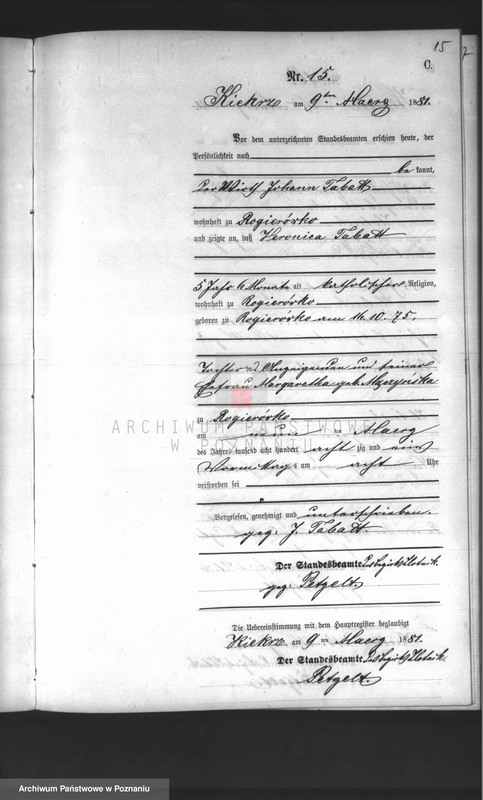 15
C.
Nr. 15.
Kiekrz am 9ten Maerz 1881.
Vor dem unterzeichneten Standesbeamten erschien heute, der
Persönlichkeit nach
be kannt,
der Wirth Johann Tabatt
wohnhaft zu Rogierówko
und zeigte an, daß Veronica Tabatt
5 Jahr 6 Monate alt katholischer Religion,
wohnhaft zu Rogierówko
geboren zu Rogierówko am 16.10.75.
Tochter des Anzeigenden und seiner
Ehefrau Margaretha geb.
zu Rogierówko
ARCHIWUM PAŃSTWOWE
W POZNANIU
am neun ten Maerz
des Jahres tausend acht hundert acht zig und ein
Vormittags um acht Uhr
verstorben sei
Vorgelesen, genehmigt und unterschrieben.
gez: J. Tabatt.
Der Standesbeamte
gez: Petzelt.
Die Uebereinstimmung mit dem Hauptregister beglaubigt
Kiekrz am 9 ten Maerz 1881.
Der Standesbeamte
Petzelt.
Archiwum Państwowe w Poznaniu